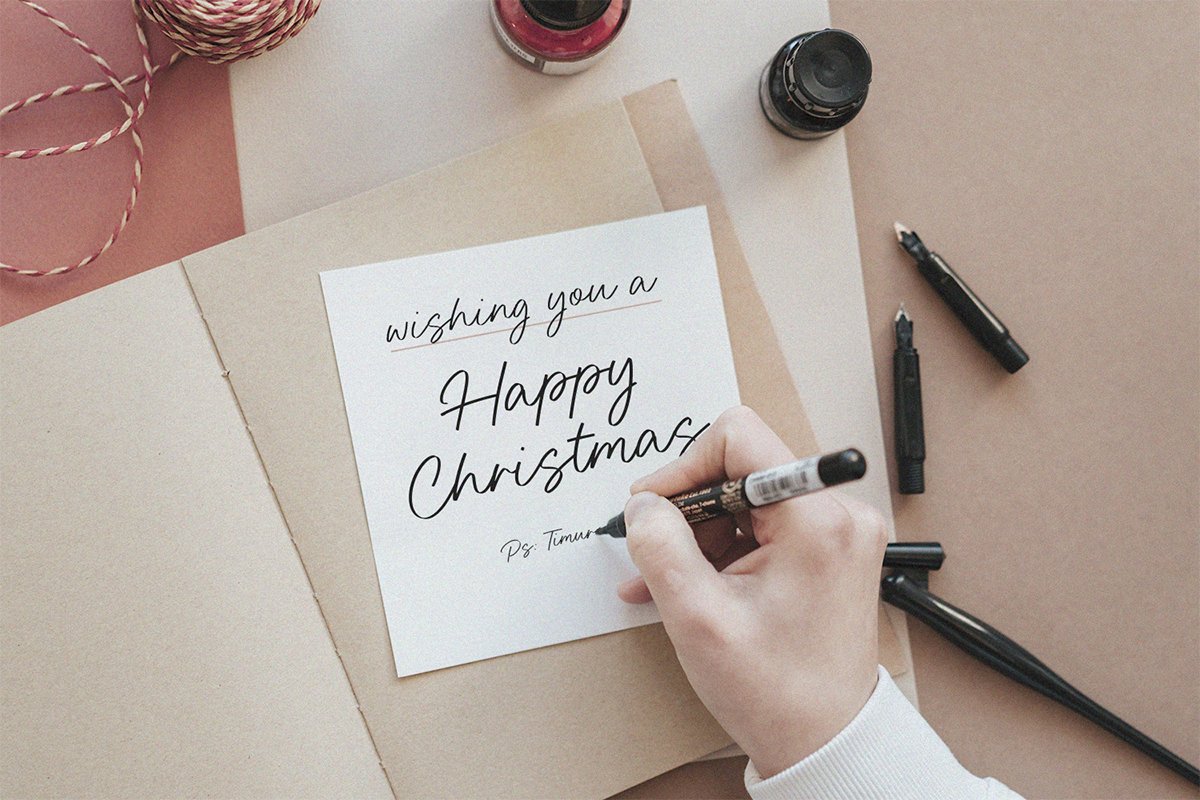 wishing you a
Happy
Christmas
Ps: Timur